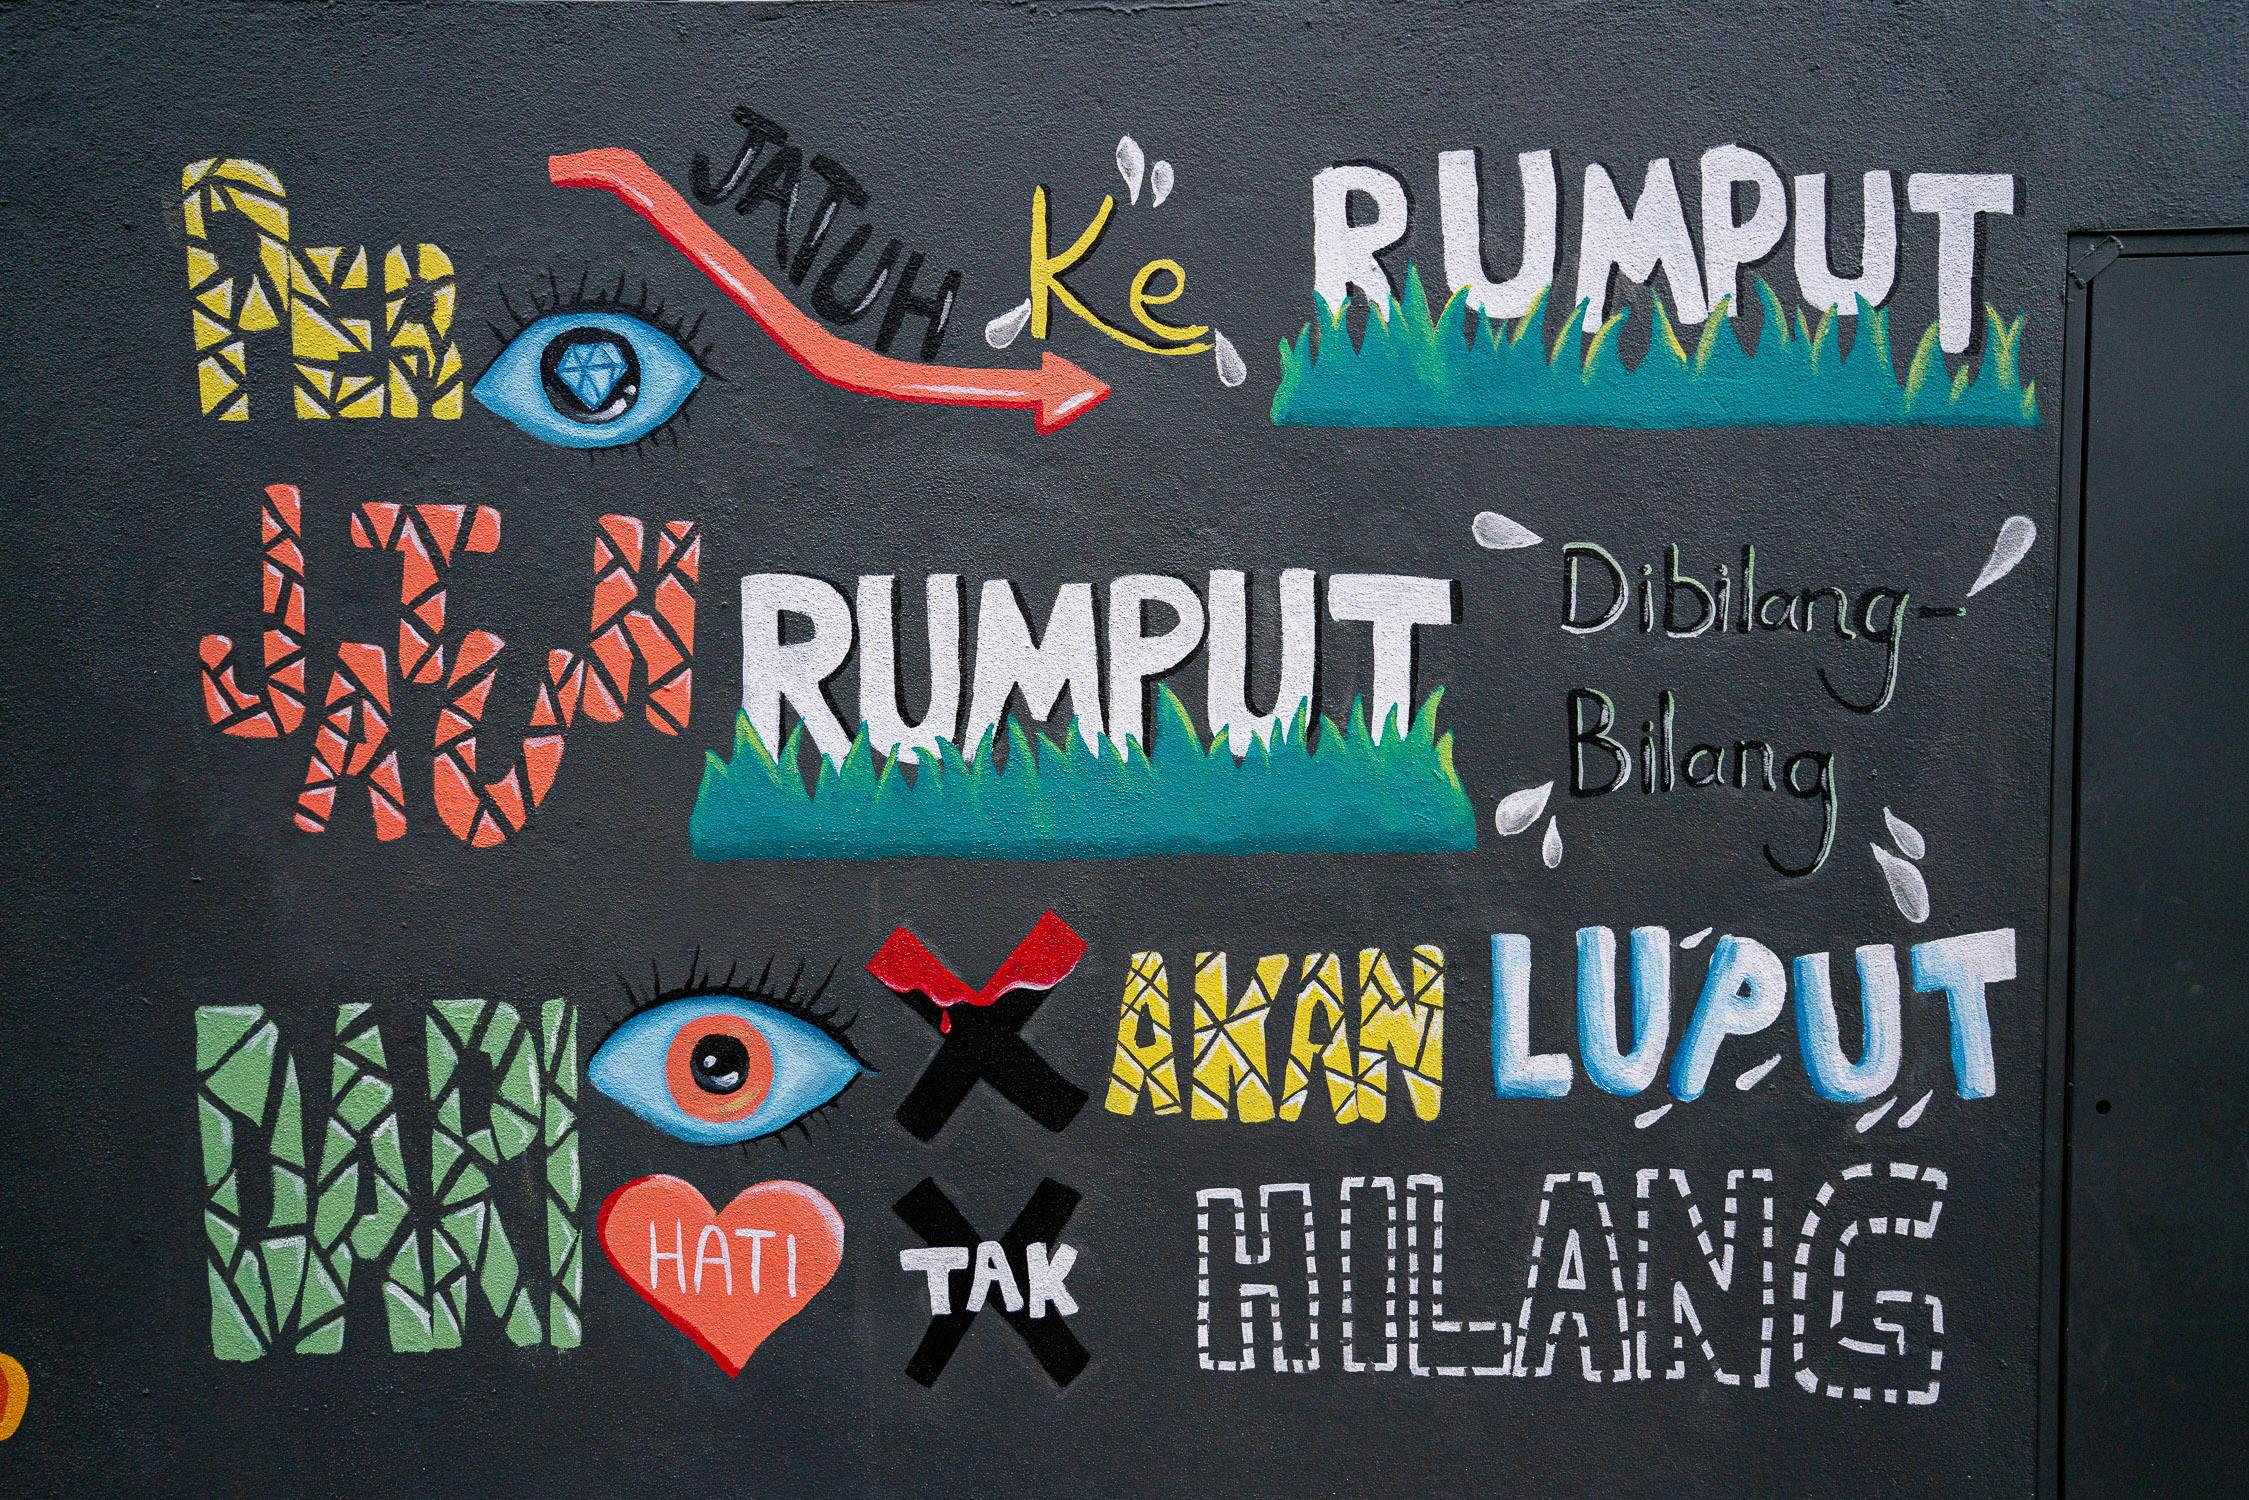 PER JATUH Ke RUMPUT
JATUH RUMPUT Dibilang-
Bilang
DARI AKAN LUPUT
HATI TAK HILANG